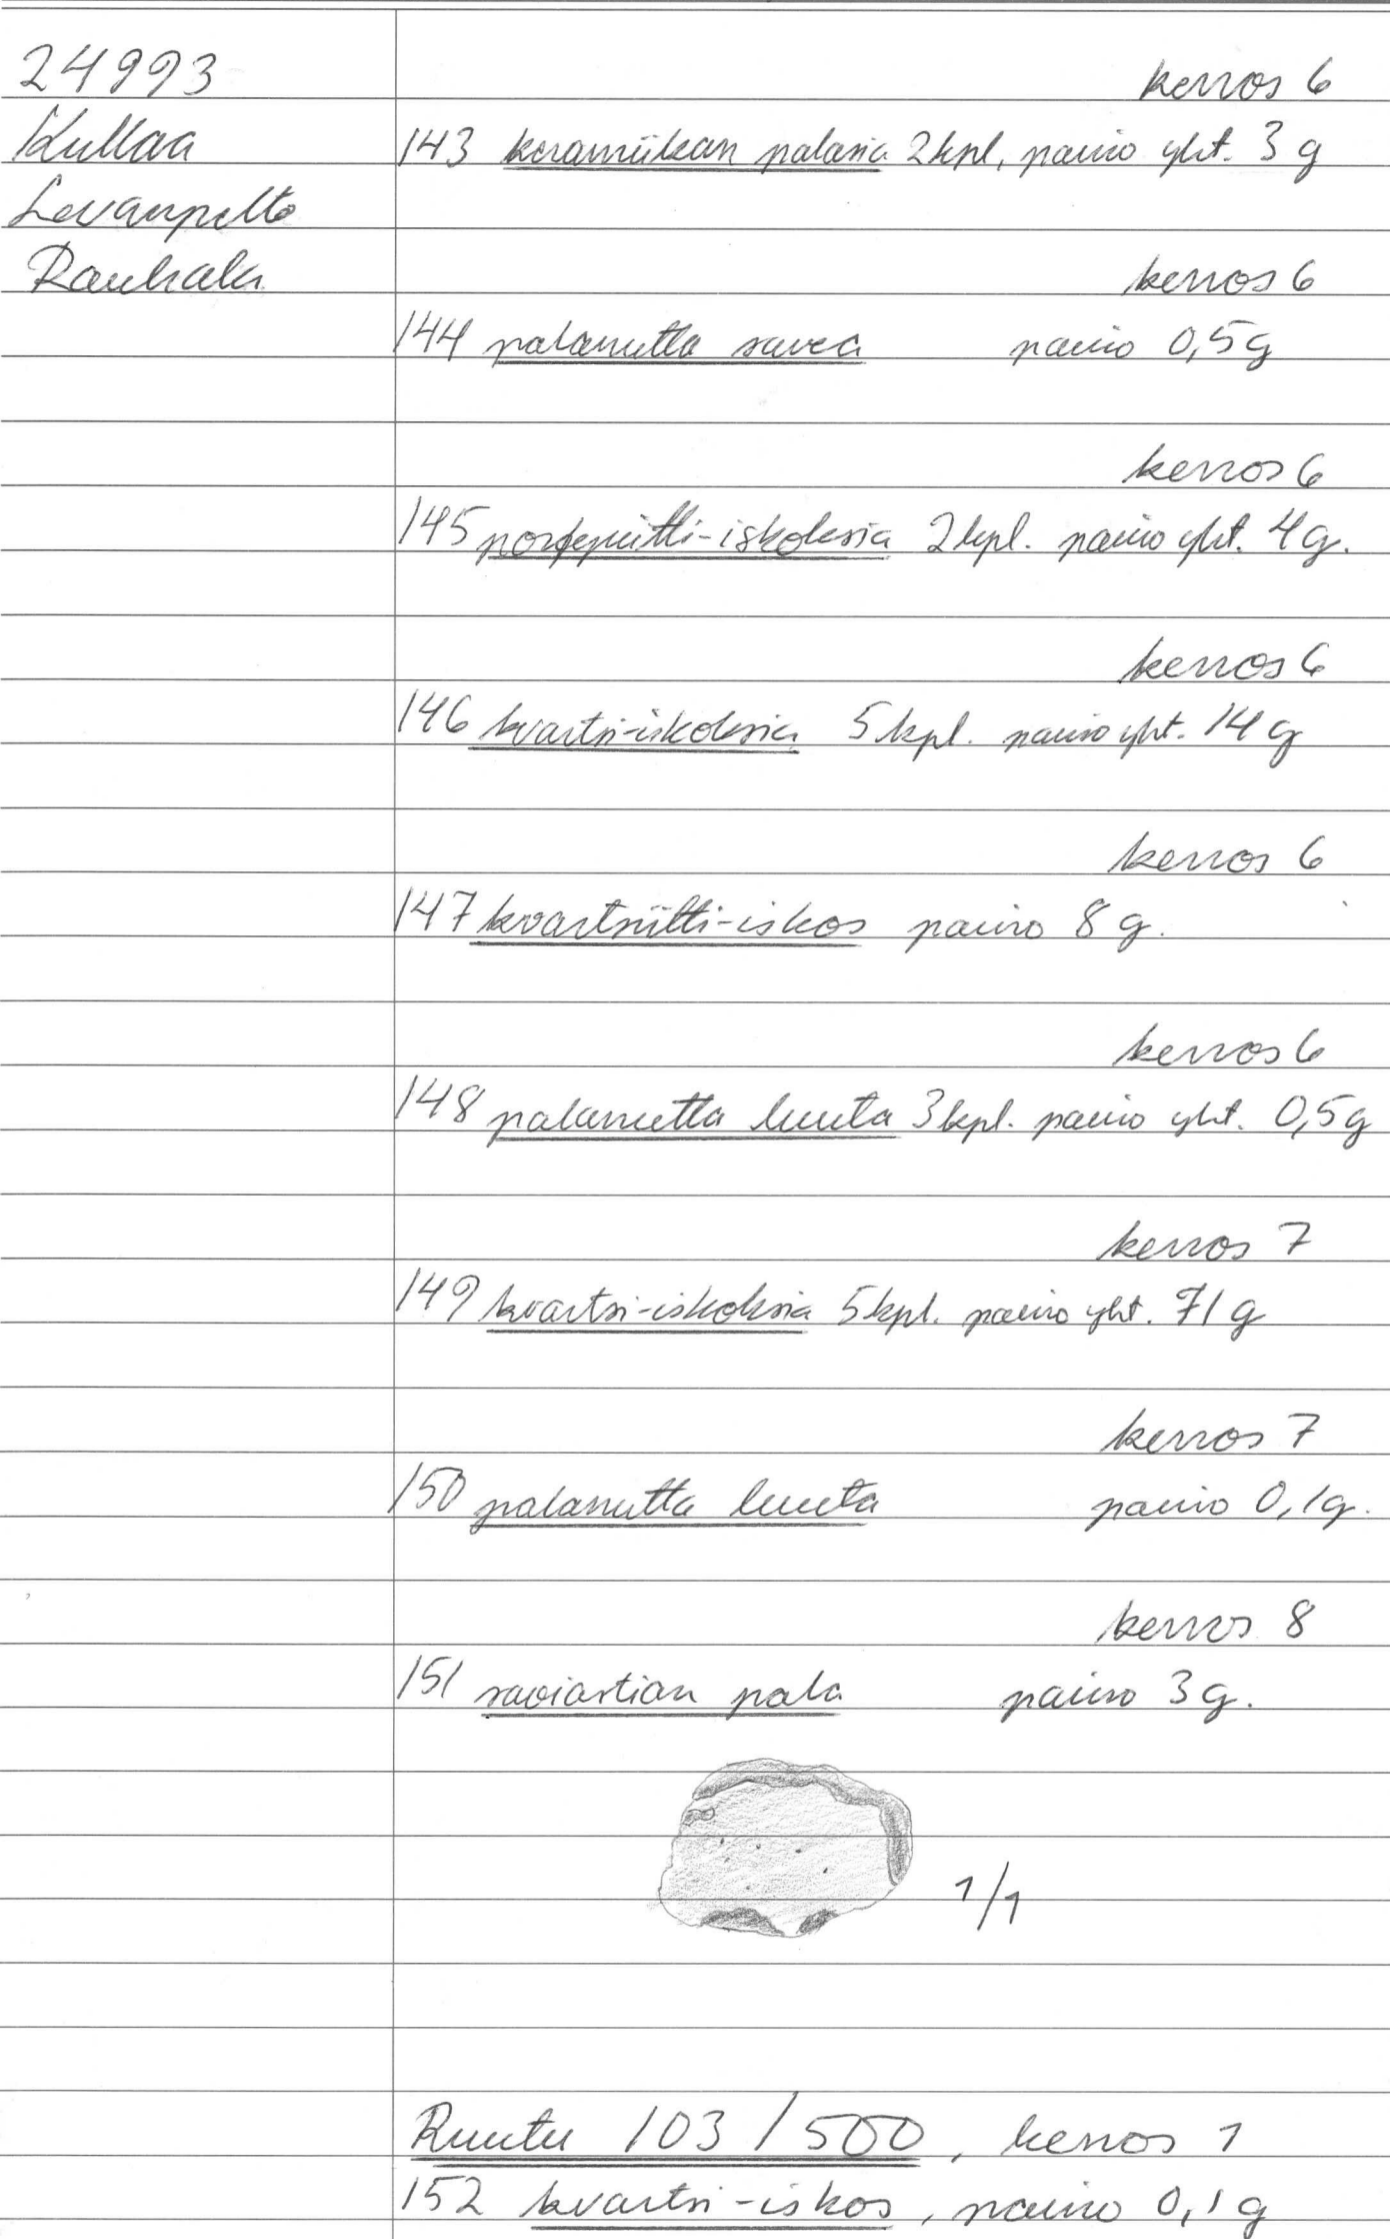 24993
Kullaa
Levanpelto
Rauhala
kerros 6
143 keramiikan palasia 2 kpl, paino yht. 3 g
kerros 6
144 palanutta savea paino 0,5 g
kerros 6
145 porfyriitti-iskoksia 2 kpl. paino yht. 4 g.
kerros 6
146 kvartsi-iskoksia 5 kpl. paino yht. 14 g
kerros 6
147 kvartsiitti-iskos paino 8 g.
kerros 6
148 palanutta luuta 3 kpl. paino yht. 0,5 g
kerros 7
149 kvartsi-iskoksia 5 kpl. paino yht. 71 g
kerros 7
150 palanutta luuta paino 0,1 g.
kerros 8
151 saviastian pala paino 3 g.
1/1
Ruutu 103 / 500, kerros 1
152 kvartsi-iskos, paino 0,1 g